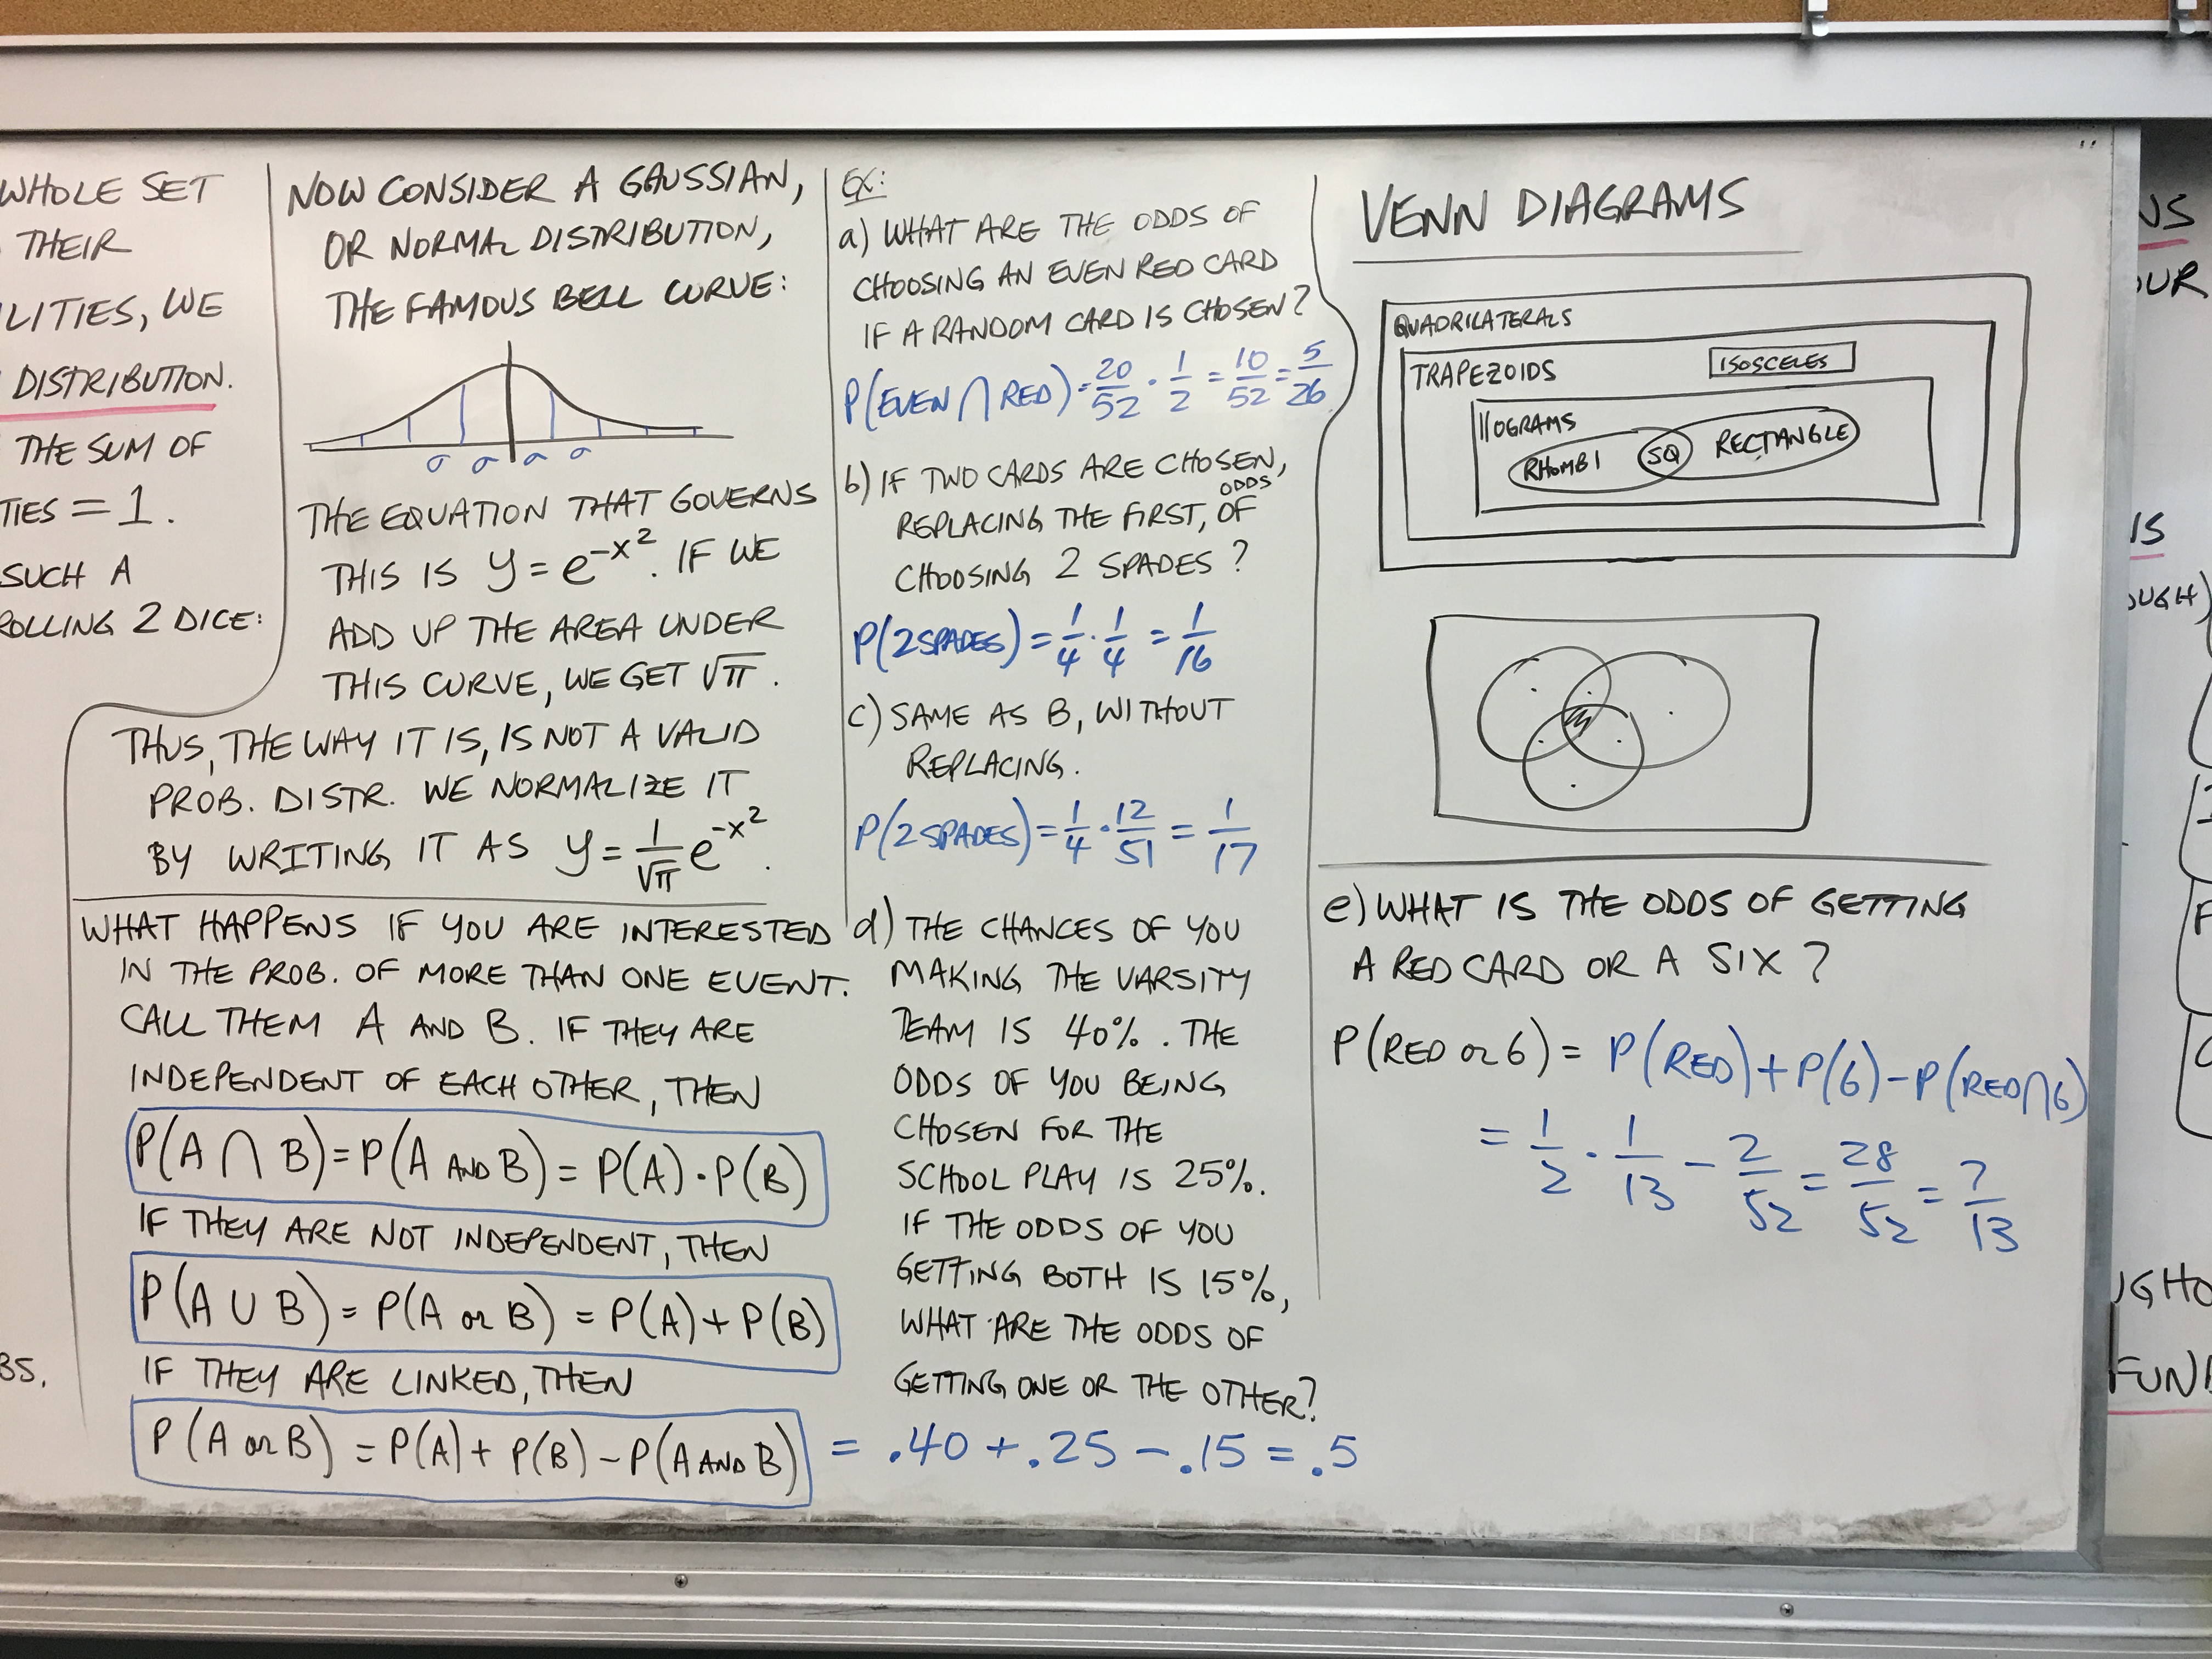 WHOLE SET
THEIR
ILITIES, WE
DISTRIBUTION.
THE SUM OF
TIES = 1.
SUCH A
ROLLING 2 DICE:
BS.
NOW CONSIDER A GAUSSIAN,
OR NORMAL DISTRIBUTION,
THE FAMOUS BELL CURVE:
σ σ σ σ
THE EQUATION THAT GOVERNS
THIS IS y = e^-x². IF WE
ADD UP THE AREA UNDER
THIS CURVE, WE GET √π.
THUS, THE WAY IT IS, IS NOT A VALID
PROB. DISTR. WE NORMALIZE IT
BY WRITING IT AS y = 1/√π e^-x².
WHAT HAPPENS IF YOU ARE INTERESTED
IN THE PROB. OF MORE THAN ONE EVENT.
CALL THEM A AND B. IF THEY ARE
INDEPENDENT OF EACH OTHER, THEN
P(A ∩ B) = P(A AND B) = P(A) · P(B)
IF THEY ARE NOT INDEPENDENT, THEN
P(A ∪ B) = P(A or B) = P(A) + P(B)
IF THEY ARE LINKED, THEN
P(A or B) = P(A) + P(B) - P(A AND B)
EX:
a) WHAT ARE THE ODDS OF
CHOOSING AN EVEN RED CARD
IF A RANDOM CARD IS CHOSEN?
P(EVEN ∩ RED) = 20/52 · 1/2 = 10/52 = 5/26
b) IF TWO CARDS ARE CHOSEN,
REPLACING THE FIRST, ODDS OF
CHOOSING 2 SPADES?
P(2 SPADES) = 1/4 · 1/4 = 1/16
c) SAME AS B, WITHOUT
REPLACING.
P(2 SPADES) = 1/4 · 12/51 = 1/17
d) THE CHANCES OF YOU
MAKING THE VARSITY
TEAM IS 40%. THE
ODDS OF YOU BEING
CHOSEN FOR THE
SCHOOL PLAY IS 25%.
IF THE ODDS OF YOU
GETTING BOTH IS 15%,
WHAT ARE THE ODDS OF
GETTING ONE OR THE OTHER?
= .40 + .25 - .15 = .5
VENN DIAGRAMS
QUADRILATERALS
TRAPEZOIDS
ISOSCELES
//OGRAMS
RHOMBI SQ RECTANGLE
e) WHAT IS THE ODDS OF GETTING
A RED CARD OR A SIX?
P(RED or 6) = P(RED) + P(6) - P(RED ∩ 6)
= 1/2 · 1/13 - 2/52 = 28/52 = 7/13
NS
OUR
IS
OUGH)
F
UGHO
FUN